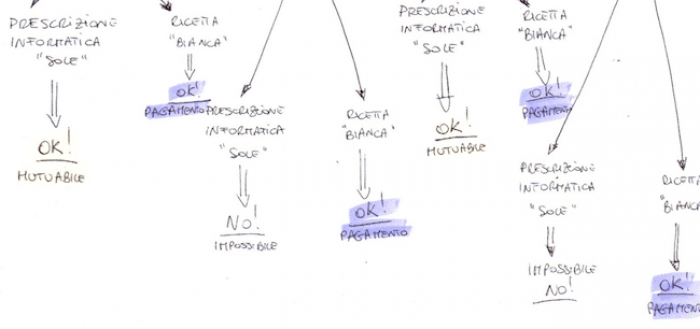 PRESCRIZIONE
INFORMATICA
"SOLE"
OK!
MUTUABILE
RICETTA
"BIANCA"
OK!
PAGAMENTO
PRESCRIZIONE
INFORMATICA
"SOLE"
NO!
IMPOSSIBILE
RICETTA
"BIANCA"
OK!
PAGAMENTO
PRESCRIZIONE
INFORMATICA
"SOLE"
OK!
MUTUABILE
RICETTA
"BIANCA"
OK!
PAGAMENTO
PRESCRIZIONE
INFORMATICA
"SOLE"
IMPOSSIBILE
NO!
RICETTA
"BIANCA
OK!
PAGAMENTO